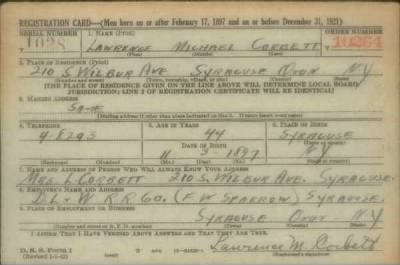 REGISTRATION CARD—(Men born on or after February 17, 1897 and on or before December 31, 1921)
SERIAL NUMBER 1. NAME (Print) ORDER NUMBER
LAWRENCE MICHAEL CORBETT 10254
(First) (Middle) (Last)
2. PLACE OF RESIDENCE (Print)
210 S. WILBUR AVE SYRACUSE ONON NY
(Number and street) (Town, township, village, or city) (County) (State)
[THE PLACE OF RESIDENCE GIVEN ON THE LINE ABOVE WILL DETERMINE LOCAL BOARD
JURISDICTION; LINE 2 OF REGISTRATION CERTIFICATE WILL BE IDENTICAL]
3. MAILING ADDRESS
SAME
[Mailing address if other than place indicated on line 2. If same insert word same]
4. TELEPHONE 5. AGE IN YEARS 6. PLACE OF BIRTH
4-8293 44 SYRACUSE
DATE OF BIRTH (Town or county)
11 3 1897
(Exchange) (Number) (Mo.) (Day) (Yr.) (State or country)
7. NAME AND ADDRESS OF PERSON WHO WILL ALWAYS KNOW YOUR ADDRESS
MRS. L. CORBETT 210 S. WILBUR AVE. SYRACUSE.
8. EMPLOYER'S NAME AND ADDRESS
D.L. & W R.R. CO. (F.W SPARROW) SYRACUSE.
9. PLACE OF EMPLOYMENT OR BUSINESS
SYRACUSE ONON NY
(Number and street or R. F. D. number) (Town) (County) (State)
I AFFIRM THAT I HAVE VERIFIED ABOVE ANSWERS AND THAT THEY ARE TRUE.
D. S. S. Form 1
Lawrence M. Corbett